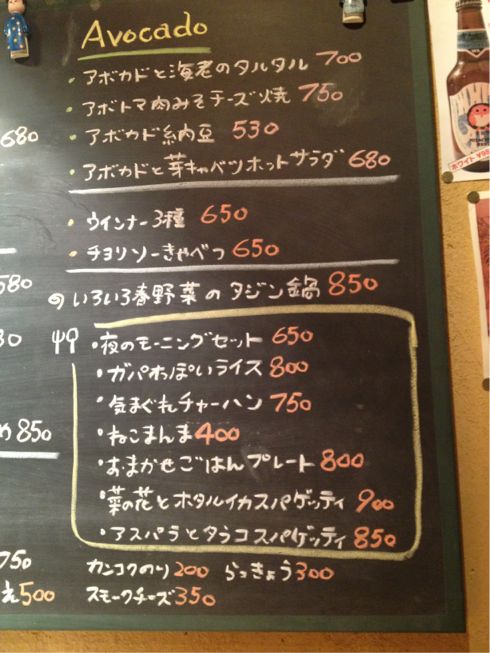 Avocado
・アボカドと海老のタルタル 700
・アボトマ肉みそチーズ焼 750
・アボカド納豆 530
680
・アボカドと芽キャベツホットサラダ 680
・ウインナー3種 650
・チョリソーきゃべつ 650
580
いろいろ春野菜のタジン鍋 850
30
・夜のモーニングセット 650
・ガパオっぽいライス 800
・気まぐれチャーハン 750
850
・ねこまんま 400
・おまかせごはんプレート 800
・菜の花とホタルイカスパゲッティ 900
・アスパラとタラコスパゲッティ 850
750
カンコクのり 200 らっきょう 300
え 500
スモークチーズ 350
ホワイト